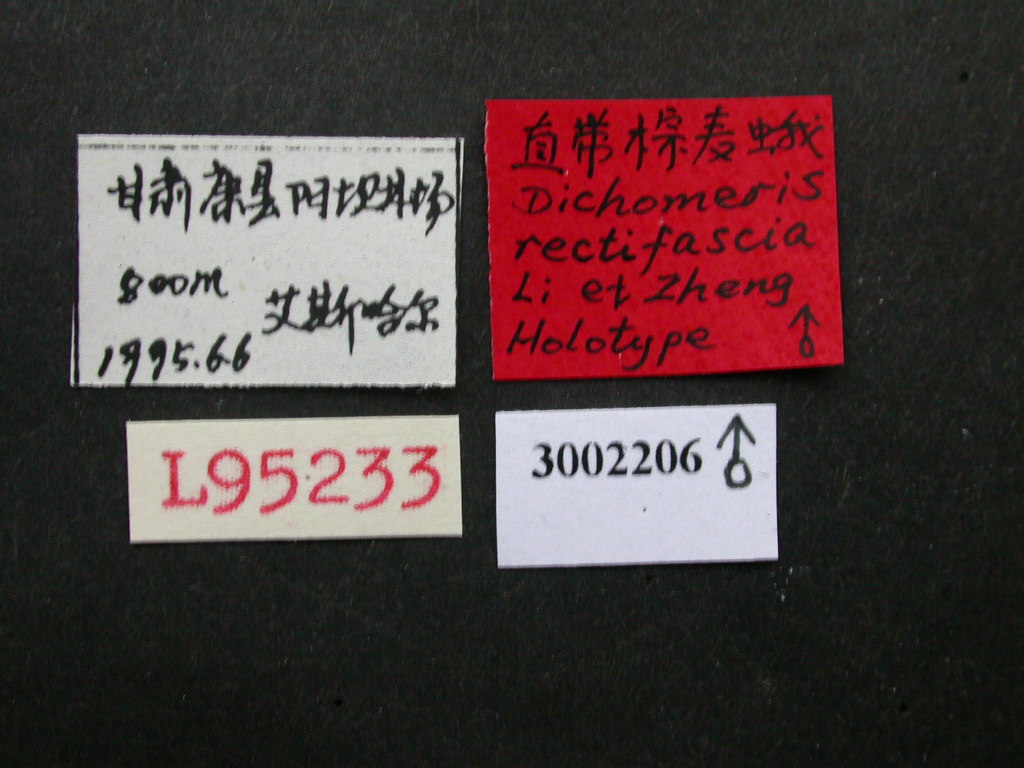 甘肃康县阳坝林场
800m
艾斯哈尔
1995.6.6
直带棕麦蛾
Dichomeris
rectifascia
Li et Zheng
Holotype ♂
L95233
3002206 ♂